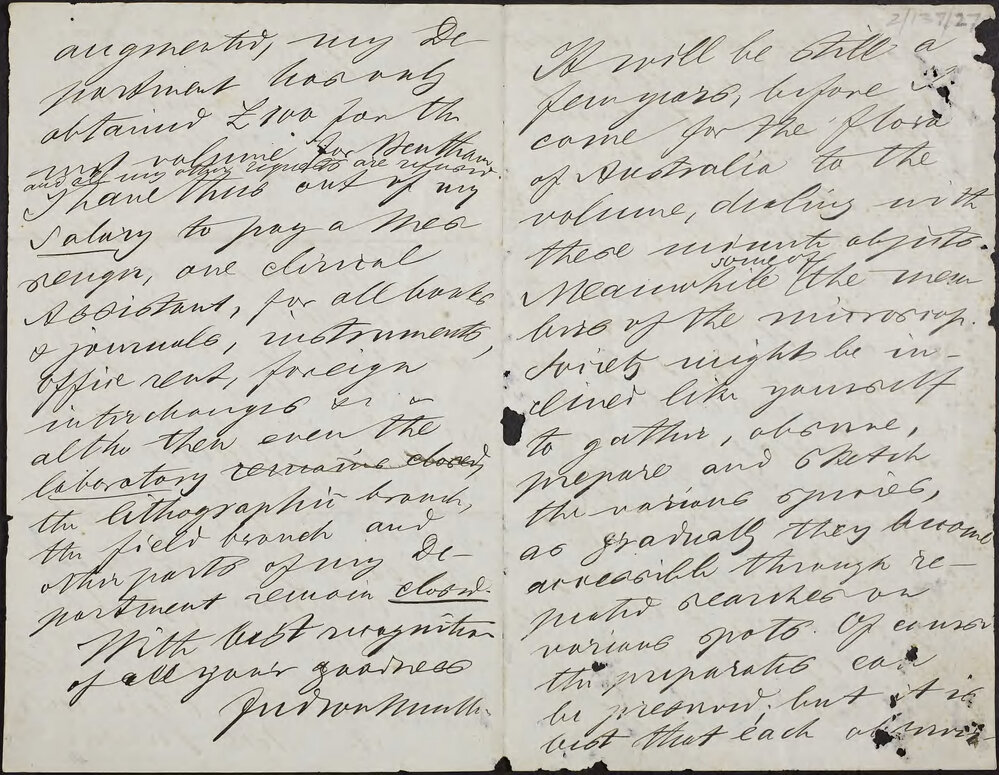 augmented, my De-
partment has only
obtained £100 for the
next volume for Bentham
and all my other requests are refused.
I have thus out of my
salary to pay a mes
senger, one clinical
Assistant, for all books
& journals, instruments,
office rent, foreign
interchanges &c &c
altho then even the
laboratory remains closed,
the lithographic branch,
the field branch and
other parts of my De-
partment remain closed.
With best recognition
of all your goodness
Ferd von Mueller
2/137/27
It will be still a
few years, before I
come for the flora
of Australia to the
volume, dealing with
these minute objects.
some of
Meanwhile the mem
bers of the microscop.
Society might be in-
clined like yourself
to gather, observe,
prepare and sketch
the various species,
as gradually they become
accessible through re-
peated searches on
various spots. Of course
the preparates can
be preserved, but it is
best that each observer